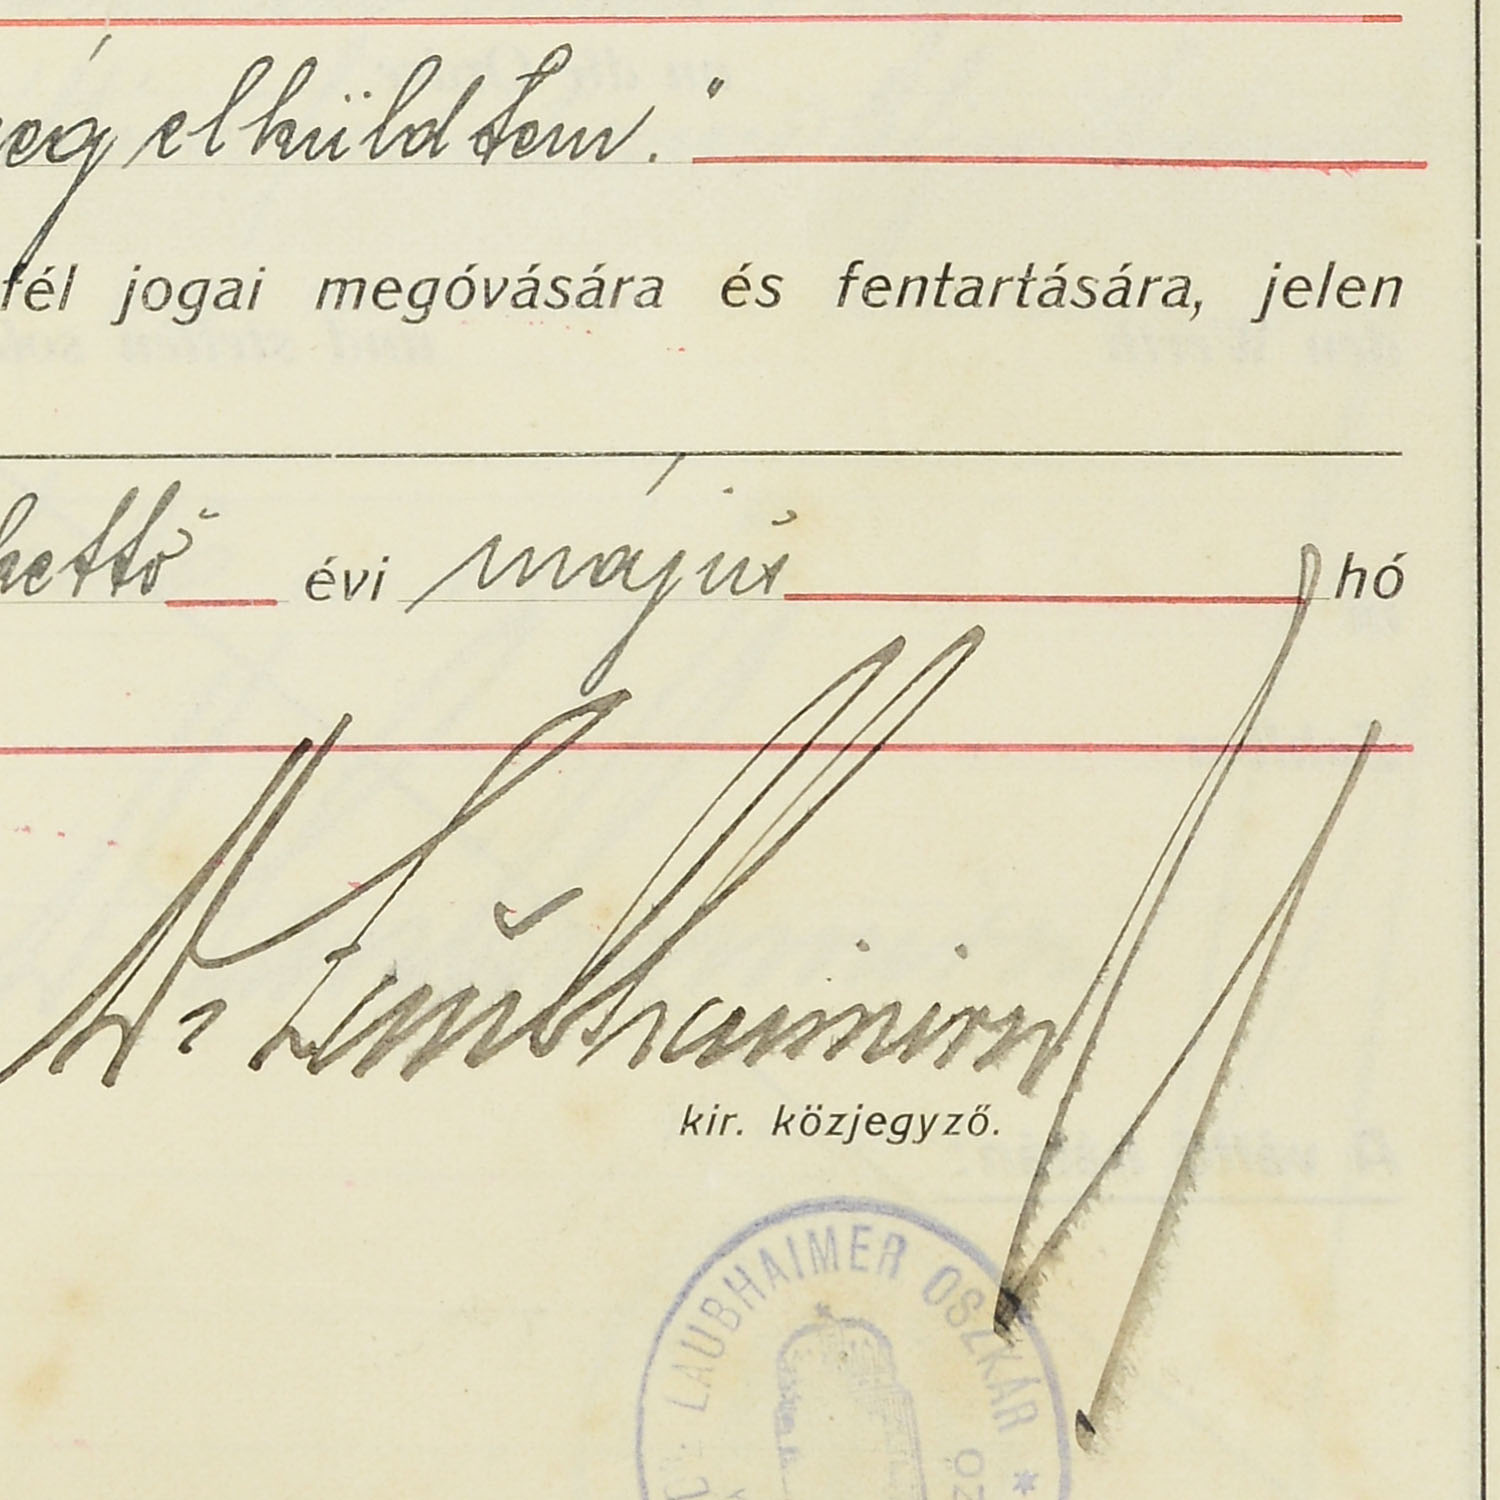 elküldtem."
fél jogai megóvására és fentartására, jelen
évi május hó
Dr Laubhaimer
kir. közjegyző.
LAUBHAIMER OSZKÁR *